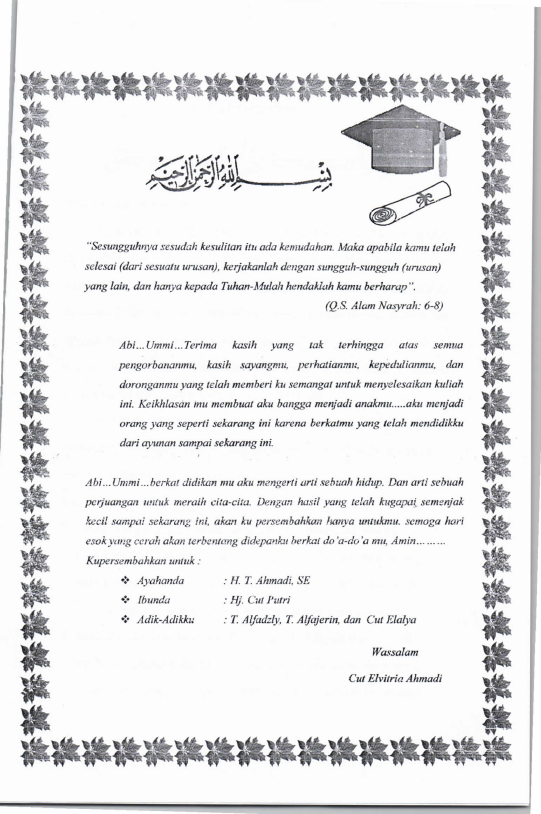 بسم الله الرحمن الرحيم
"Sesungguhnya sesudah kesulitan itu ada kemudahan. Maka apabila kamu telah
selesai (dari sesuatu urusan), kerjakanlah dengan sungguh-sungguh (urusan)
yang lain, dan hanya kepada Tuhan-Mulah hendaklah kamu berharap".
(Q.S. Alam Nasyrah: 6-8)
Abi...Ummi...Terima kasih yang tak terhingga atas semua
pengorbananmu, kasih sayangmu, perhatianmu, kepedulianmu, dan
doronganmu yang telah memberi ku semangat untuk menyelesaikan kuliah
ini. Keikhlasan mu membuat aku bangga menjadi anakmu.....aku menjadi
orang yang seperti sekarang ini karena berkatmu yang telah mendidikku
dari ayunan sampai sekarang ini.
Abi...Ummi...berkat didikan mu aku mengerti arti sebuah hidup. Dan arti sebuah
perjuangan untuk meraih cita-cita. Dengan hasil yang telah kugapai semenjak
kecil sampai sekarang ini, akan ku persembahkan hanya untukmu. semoga hari
esok yang cerah akan terbentang didepanku berkat do'a-do'a mu, Amin.........
Kupersembahkan untuk :
❖ Ayahanda : H. T. Ahmadi, SE
❖ Ibunda : Hj. Cut Putri
❖ Adik-Adikku : T. Alfadzly, T. Alfajerin, dan Cut Elalya
Wassalam
Cut Elvitria Ahmadi